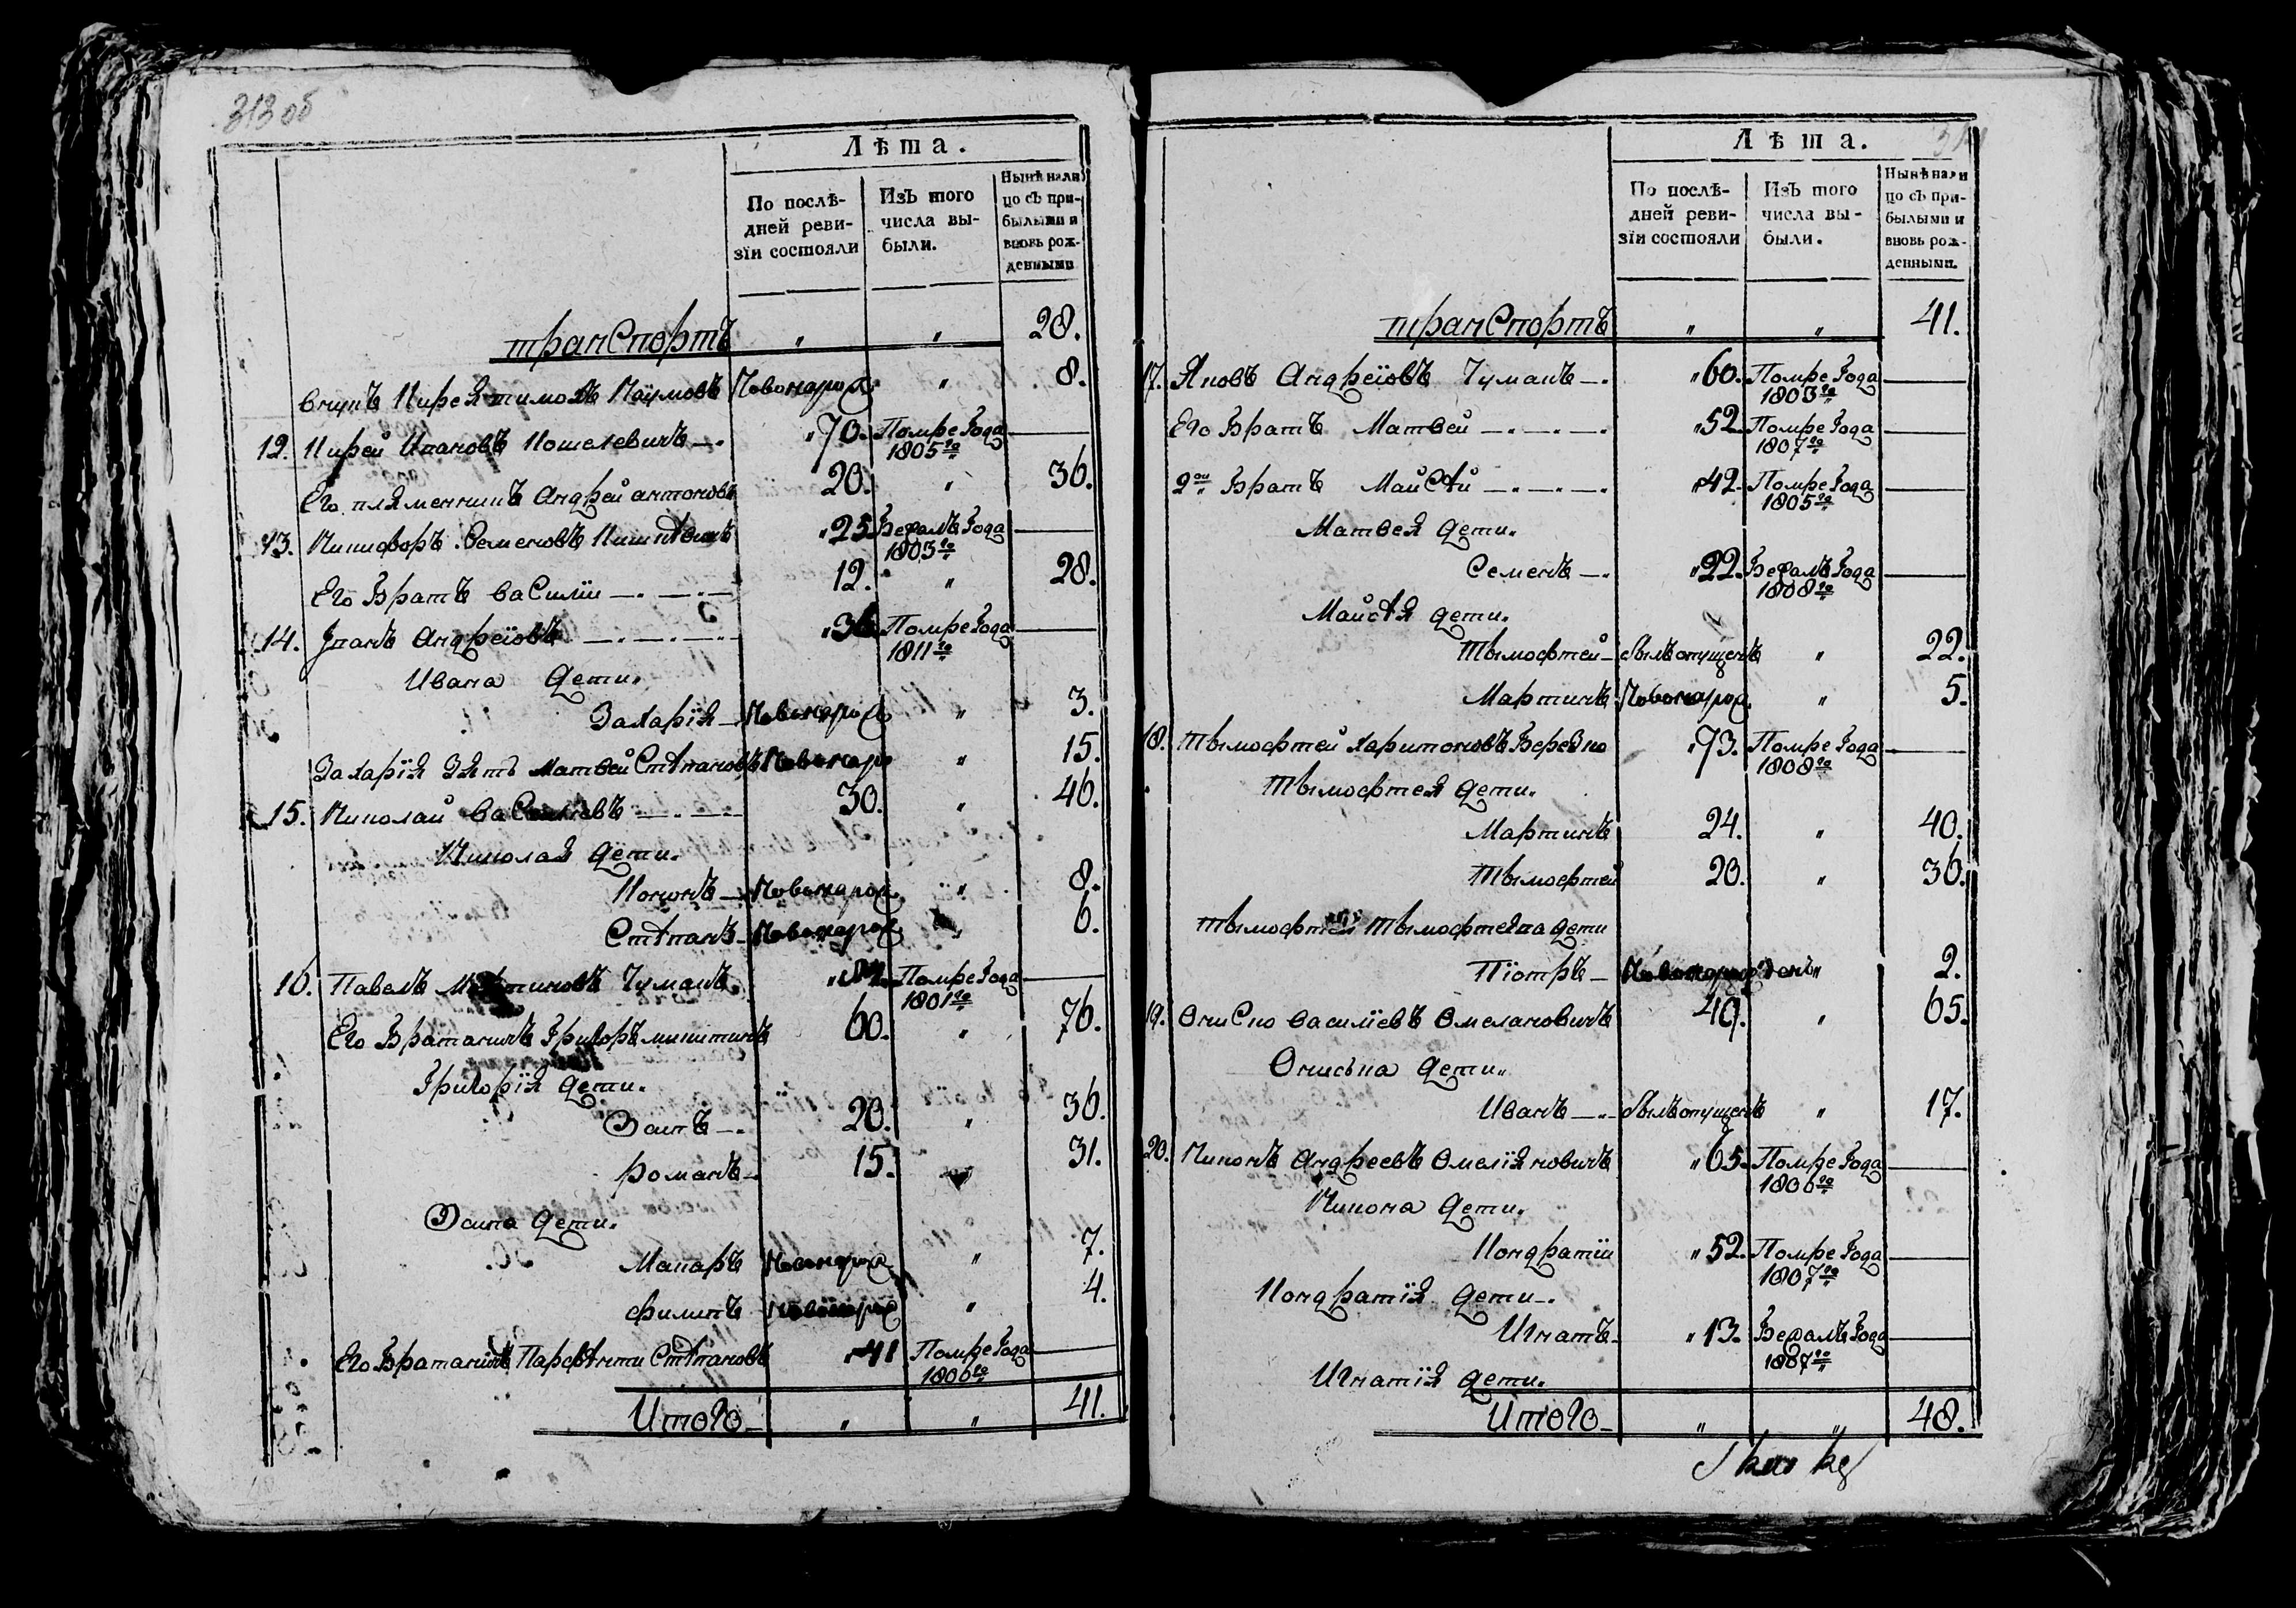 313 об
Лѣта.
По послѣ-
дней реви-
зїи состояли
Изъ того
числа вы-
были.
Нынѣ нали
цо съ при-
былыми и
вновь рож-
денными
транспортъ " " 28.
внукъ Кирея тимохъ Наумовъ Новонарод. " 8.
12. Кирей Ипановъ Кошелевичъ "70. Помре Года
1805го
Его пляменникъ Андрей антоновъ 20. " 36.
13. Никифоръ Семеновъ "25 Бежалъ Года
1803го
Его Братъ василiи 12. " 28.
14. Іпанъ Андреїовъ "36 Помре Года
1811го
Ивана дети.
Захарїя Новонарод " 3.
Захарїя Зять Матвей Стѣпановъ Новонаро " 15.
15. Николай Васильевъ 30. " 46.
Николая дети.
Кононъ Новонарод. " 8.
Стѣпанъ Новонарод " 6.
16. Павелъ Мартиновъ Чуманъ Помре Года
1801го
Его Братаничъ Григоръ микитинъ 60. " 76.
Григорїя дети.
Эсипъ 20. " 36.
романъ 15. 31.
Эсипа дети.
Макаръ Новонарод " 7.
филипъ Новонарод " 4.
Его Братаничъ Парфѣнти Стѣпановъ "41 Помре Года
1806го
Итого " " 41.
Лѣта.
По послѣ-
дней реви-
зїи состояли
Изъ того
числа вы-
были.
Нынѣ нали
цо съ при-
былыми и
вновь рож-
денными.
транспортъ " " 41.
17. Яковъ Андреїовъ Чуманъ "60. Помре Года
1803го
Его Братъ Матвей "52. Помре Года
1807го
2ой Братъ Майсѣй "42. Помре Года
1805го
Матвея дети.
Семенъ "22. Бежалъ Года
1808го
Майсѣя дети.
Тымофтей былъ опущенъ " 22.
Мартинъ Новонарод. " 5.
18. Тымофтей харитоновъ Березко "73. Помре Года
1808го
Тымофтея дети.
Мартинъ 24. " 40.
Тымофтей 20. " 36.
Тымофтея Тымофтеяка дети
Пїотръ Новонарожденъ " 2.
19. Ониско василїевъ Омеляновичъ 49. " 65.
Ониська дети.
Иванъ былъ опущенъ " 17.
20. Никонъ Андреевъ Омеліяновичъ "65. Помре Года
1806го
Никона дети.
Кондратїи "52. Помре Года
1807го
Кондратїя дети.
Игнатъ "13. Бежалъ Года
1807го
Игнатїя дети.
Итого " " 48.